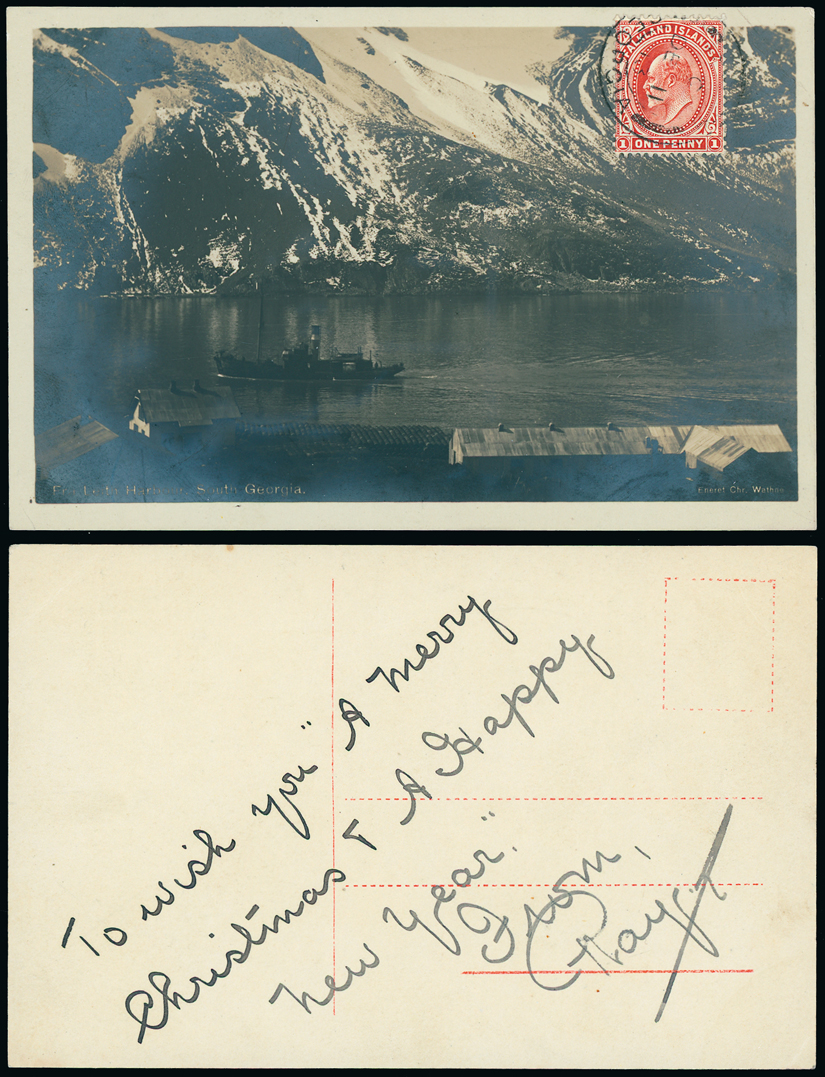 FALKLAND ISLANDS
1 ONE PENNY 1
Harbour, South Georgia.
Eneret Chr. Wathne
To wish you "A Merry
Christmas & A Happy
New Year".
From,
Ray